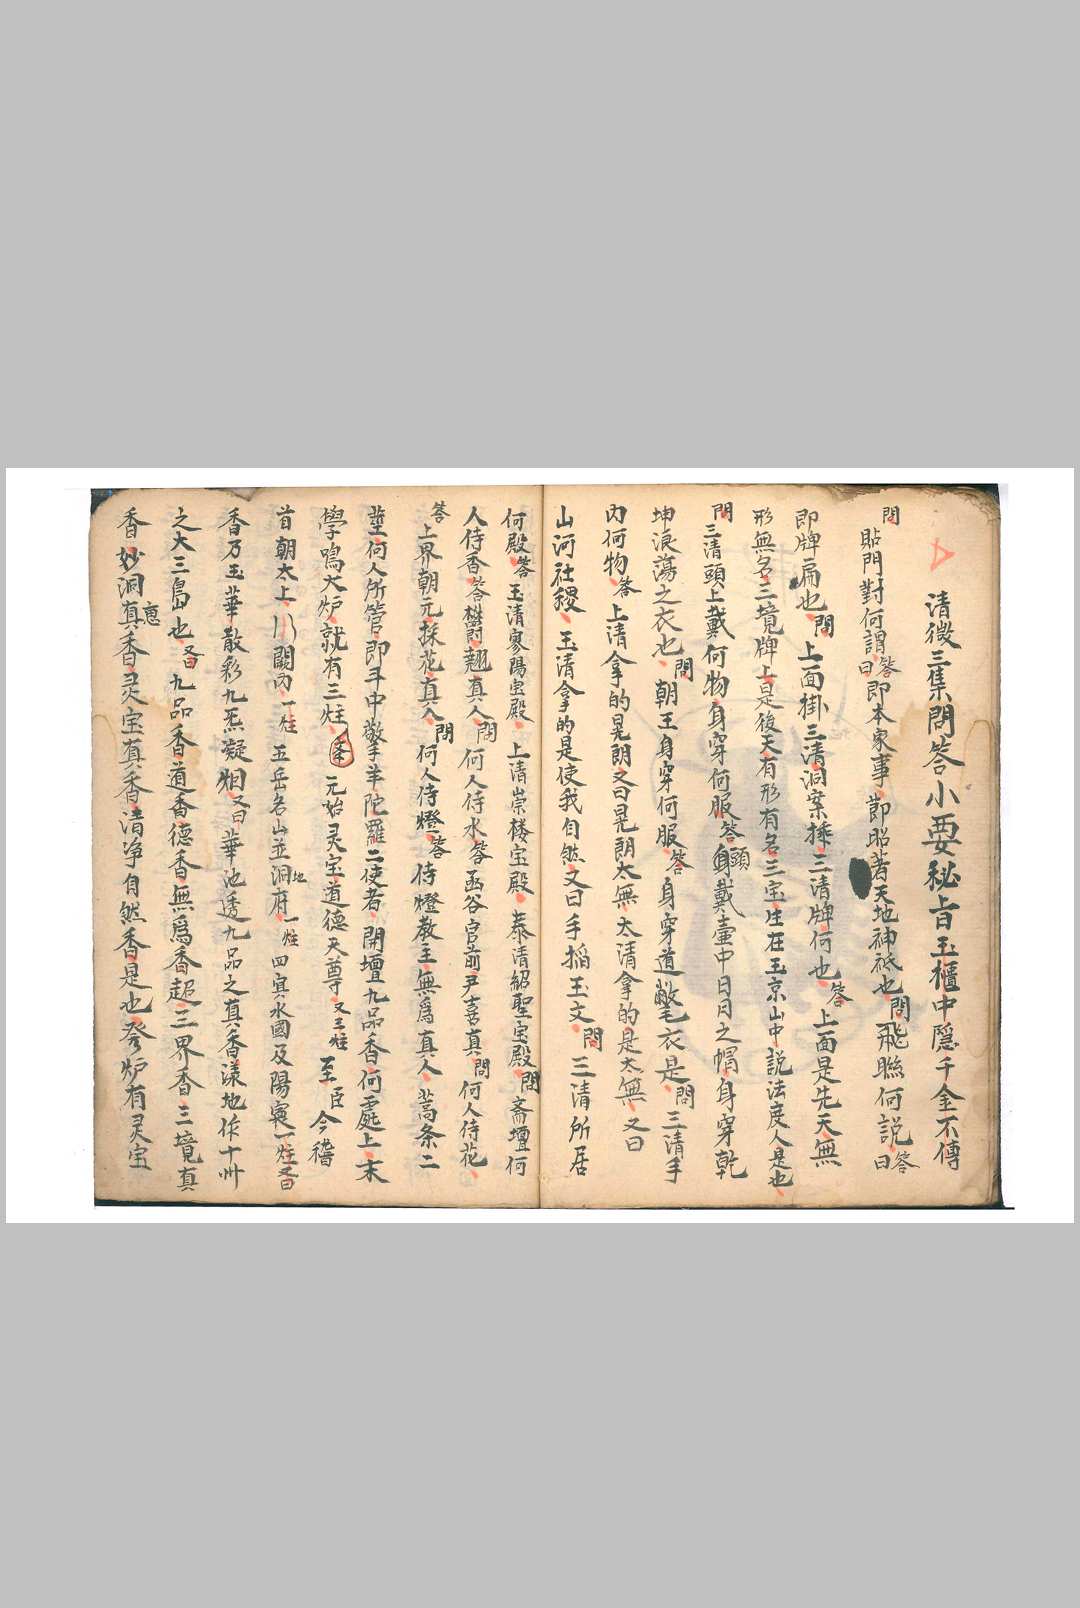 清微三集問答小要秘旨玉櫃中隱千金不傳
問貼門對何謂答曰即本家事鄀昭著天地神祗也問飛聯何説答曰
即牌扁也問上面掛三清洞案掛三清牌何也答上面是先天無
形無名三境牌上是後天有形有名三宝生在玉京山中説法度人是也
問三清頭上戴何物身穿何服答頭戴壷中日月之帽身穿乾
坤浪蕩之衣也問朝王身穿何服答身穿道氅衣是問三清手
内何物答上清拿的晃朗又曰晃朗太無太清拿的是太無又曰
山河社稷玉清拿的是使我自然又曰手搯玉文問三清所居
何殿答玉清寥陽宝殿上清崇楼宝殿泰清紹聖宝殿問斋壇何
人侍香答翹真人問何人侍水答函谷官前尹喜真問何人侍花
答上界朝元採花真人問何人侍燈答侍燈教主無爲真人蒿条二
莖何人所管即斗中擎羊陀羅二使者開壇九品香何處上末
學鳴大炉就有三炷元始灵宝道德天尊又三炷至臣今稽
首朝太上闕内一炷五岳名山並洞府地一炷四冥水國及陽寰一炷又曰
香乃玉華散彩九炁凝烟又曰華池透九品之真香漾地作十州
之大三島也又曰九品香道香德香無爲香超三界香三境真
香妙洞真香惠灵宝真香清净自然香是也發炉有灵宝